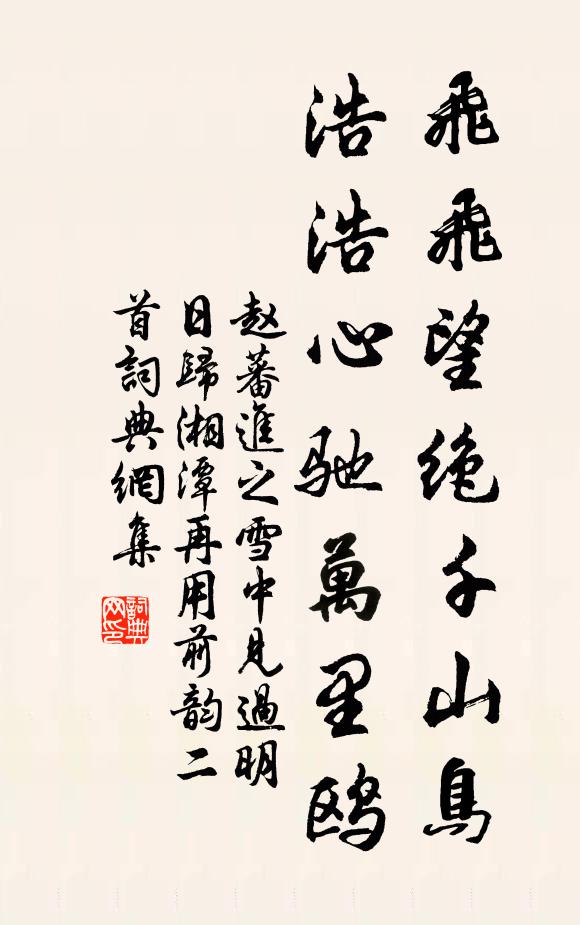 飛飛望绝千山鳥
浩浩心馳萬里鸥
赵蕃進之雪中見過明
日歸湘潭再用前韵二
首詞典網集
詞典
网印